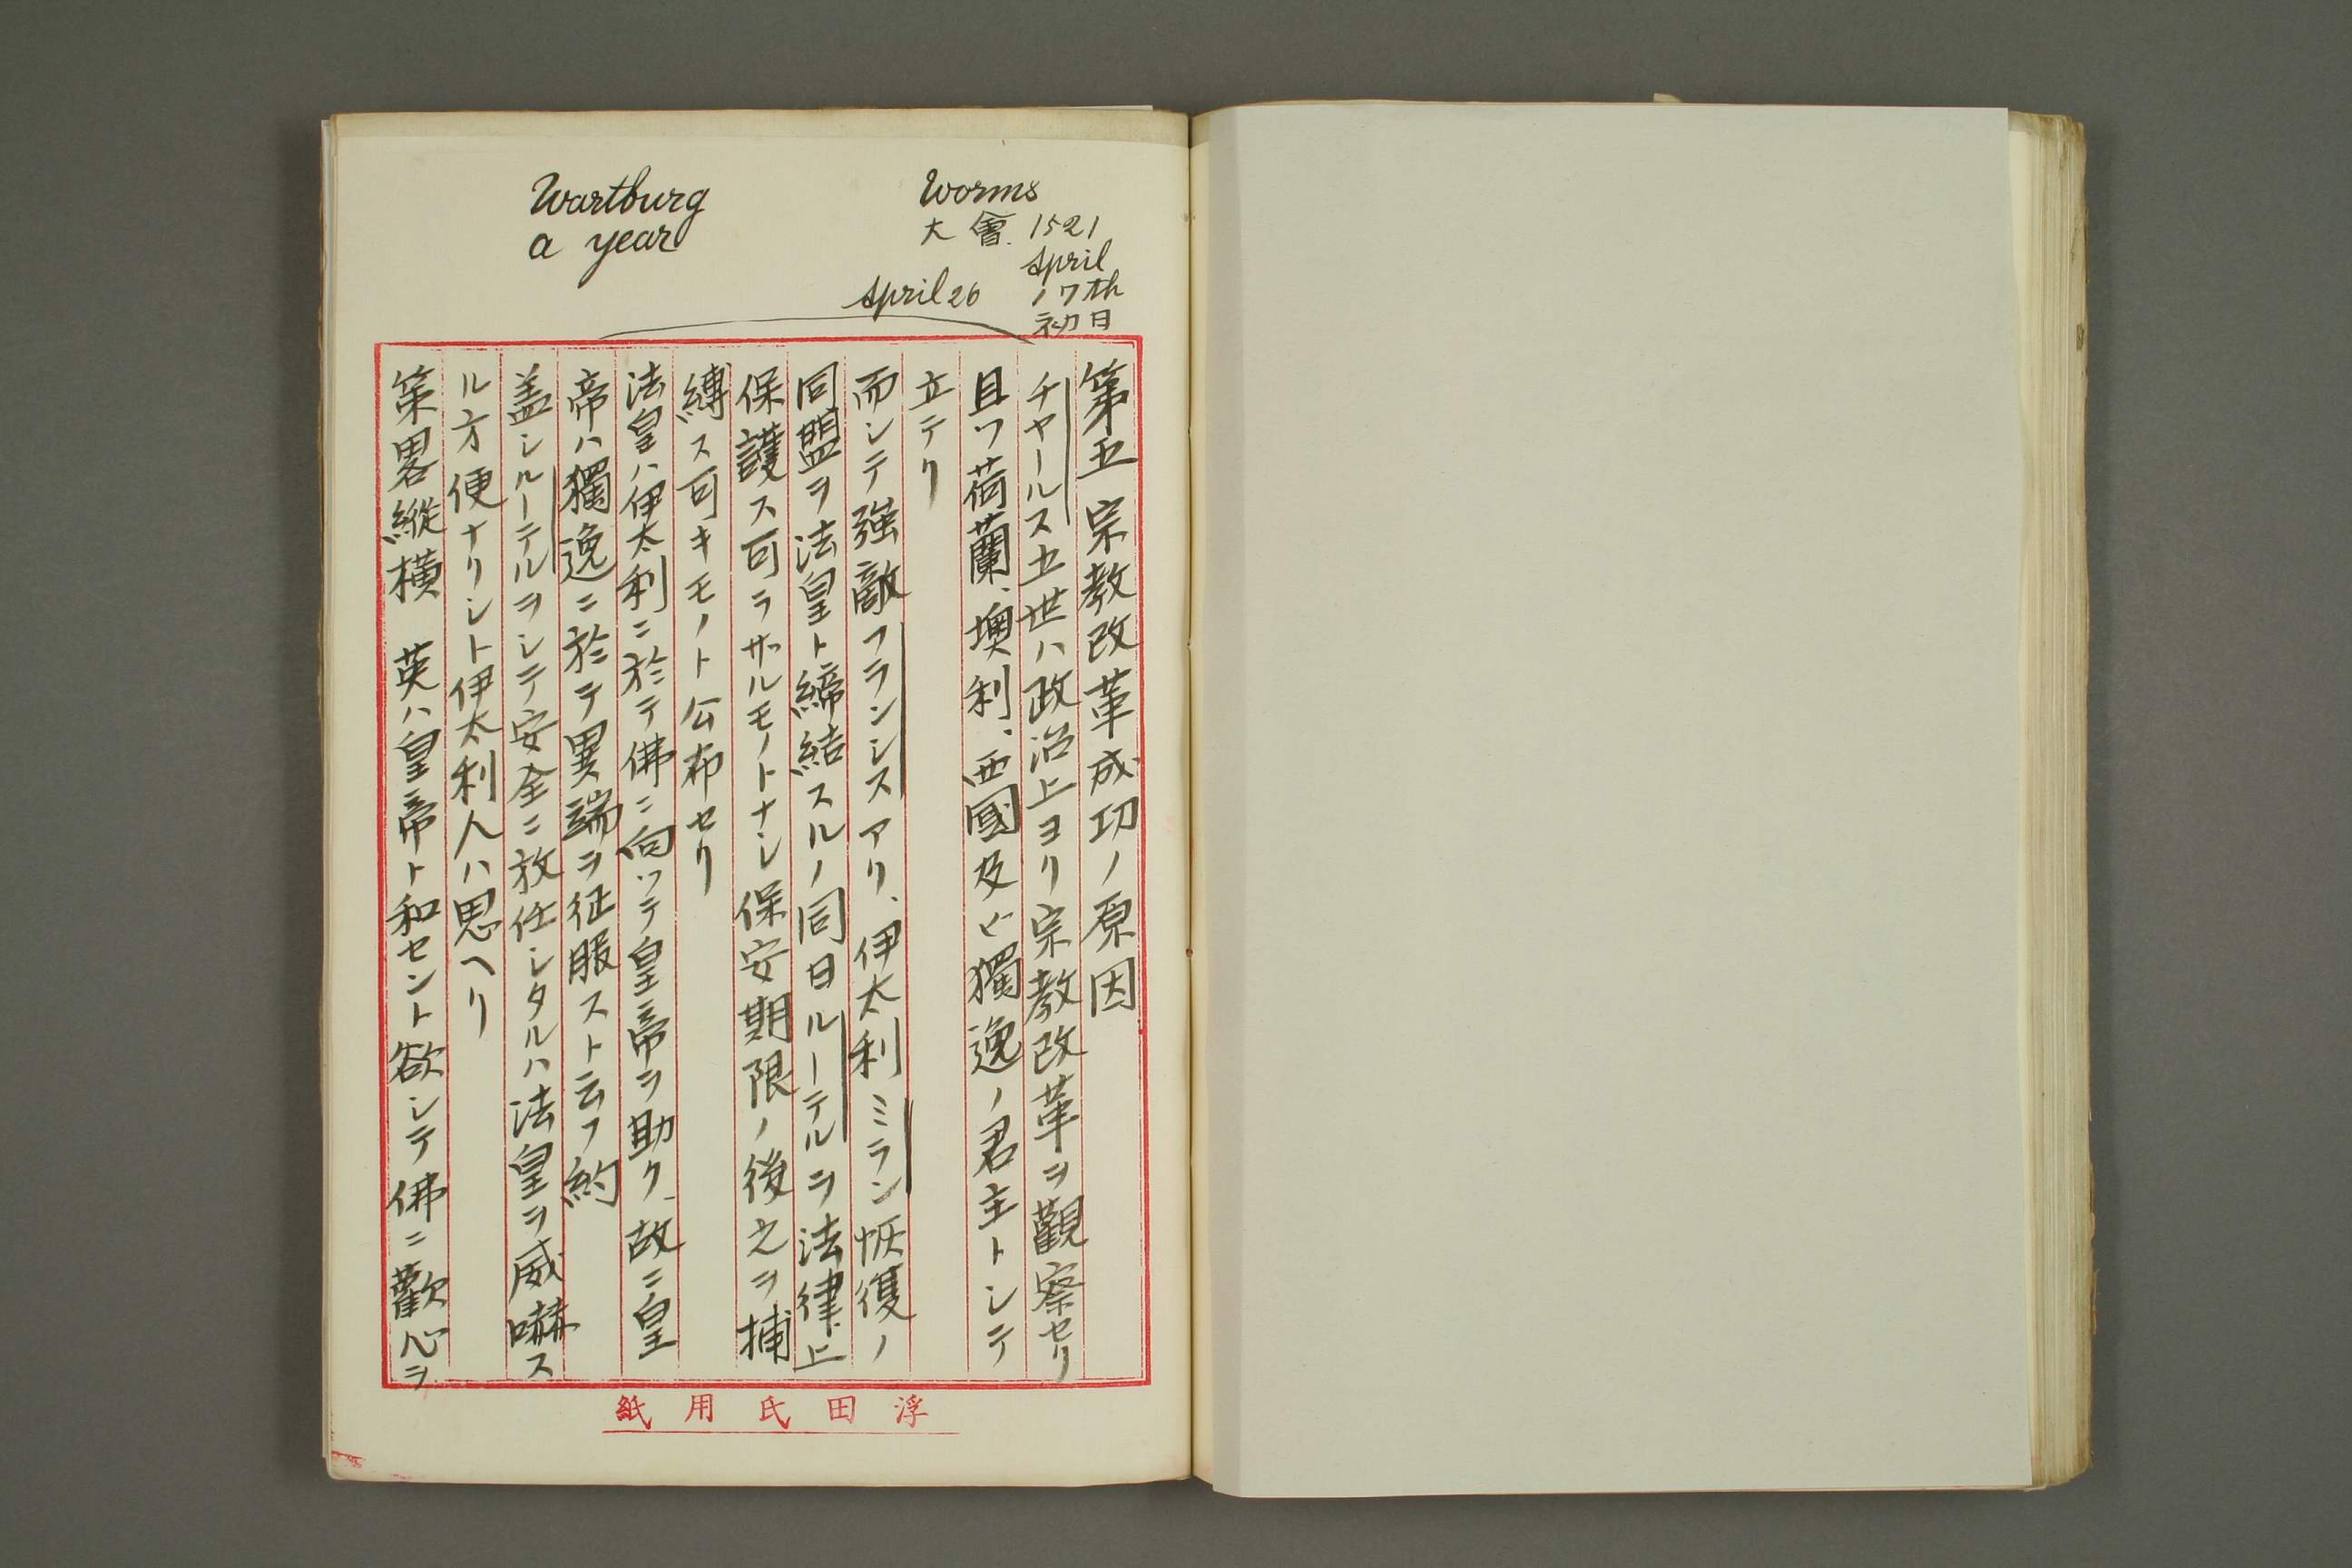 Worms
大會. 1521
April
17th
初日
April 26
Wartburg
a year
第五 宗教改革成功ノ原因
チヤールス五世ハ政治上ヨリ宗教改革ヲ觀察セリ
且ツ荷蘭、墺利、西國及ヒ獨逸ノ君主トシテ
立テリ
而シテ强敵フランシスアリ、伊太利ミラン恢復ノ
同盟ヲ法皇ト締結スルノ同日ルーテルヲ法律上
保護ス可ラザルモノトナシ保安期限ノ後之ヲ捕
縛ス可キモノト公布セリ
法皇ハ伊太利ニ於テ佛ニ向ツテ皇帝ヲ助ク、故ニ皇
帝ハ獨逸ニ於テ異端ヲ征服スト云フ約
盖シルーテルヲシテ安全ニ放任シタルハ法皇ヲ威嚇ス
ル方便ナリシト伊太利人ハ思ヘリ
策畧縱橫 英ハ皇帝ト和セント欲シテ佛ニ歡心ヲ
浮田氏用紙